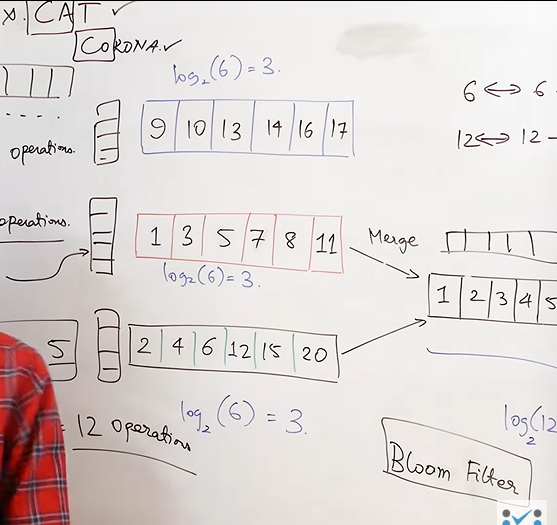 x. CAT ✓
CORONA ✓
log₂(6) = 3.
6 <=> 6
12 <=> 12 -
operations.
9 10 13 14 16 17
operations.
1 3 5 7 8 11
Merge
log₂(6) = 3.
1 2 3 4 5
5
2 4 6 12 15 20
= 12 operations
log₂(6) = 3.
log₂(12
Bloom Filter